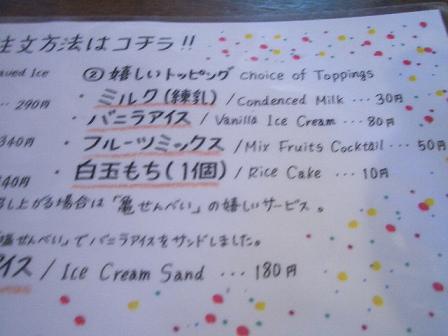 注文方法はコチラ!!
② 嬉しいトッピング choice of Toppings
Ice
... 290円
・ミルク(練乳) / Condenced Milk ... 30円
・バニラアイス / Vanilla Ice Cream ... 80円
340円
・フルーツミックス / Mix Fruits Cocktail ... 50円
40円
・白玉もち(1個) / Rice Cake ... 10円
し上がる場合は「亀せんべい」の嬉しいサービス。
せんべい」でバニラアイスをサンドしました。
アイス / Ice Cream Sand ... 180円